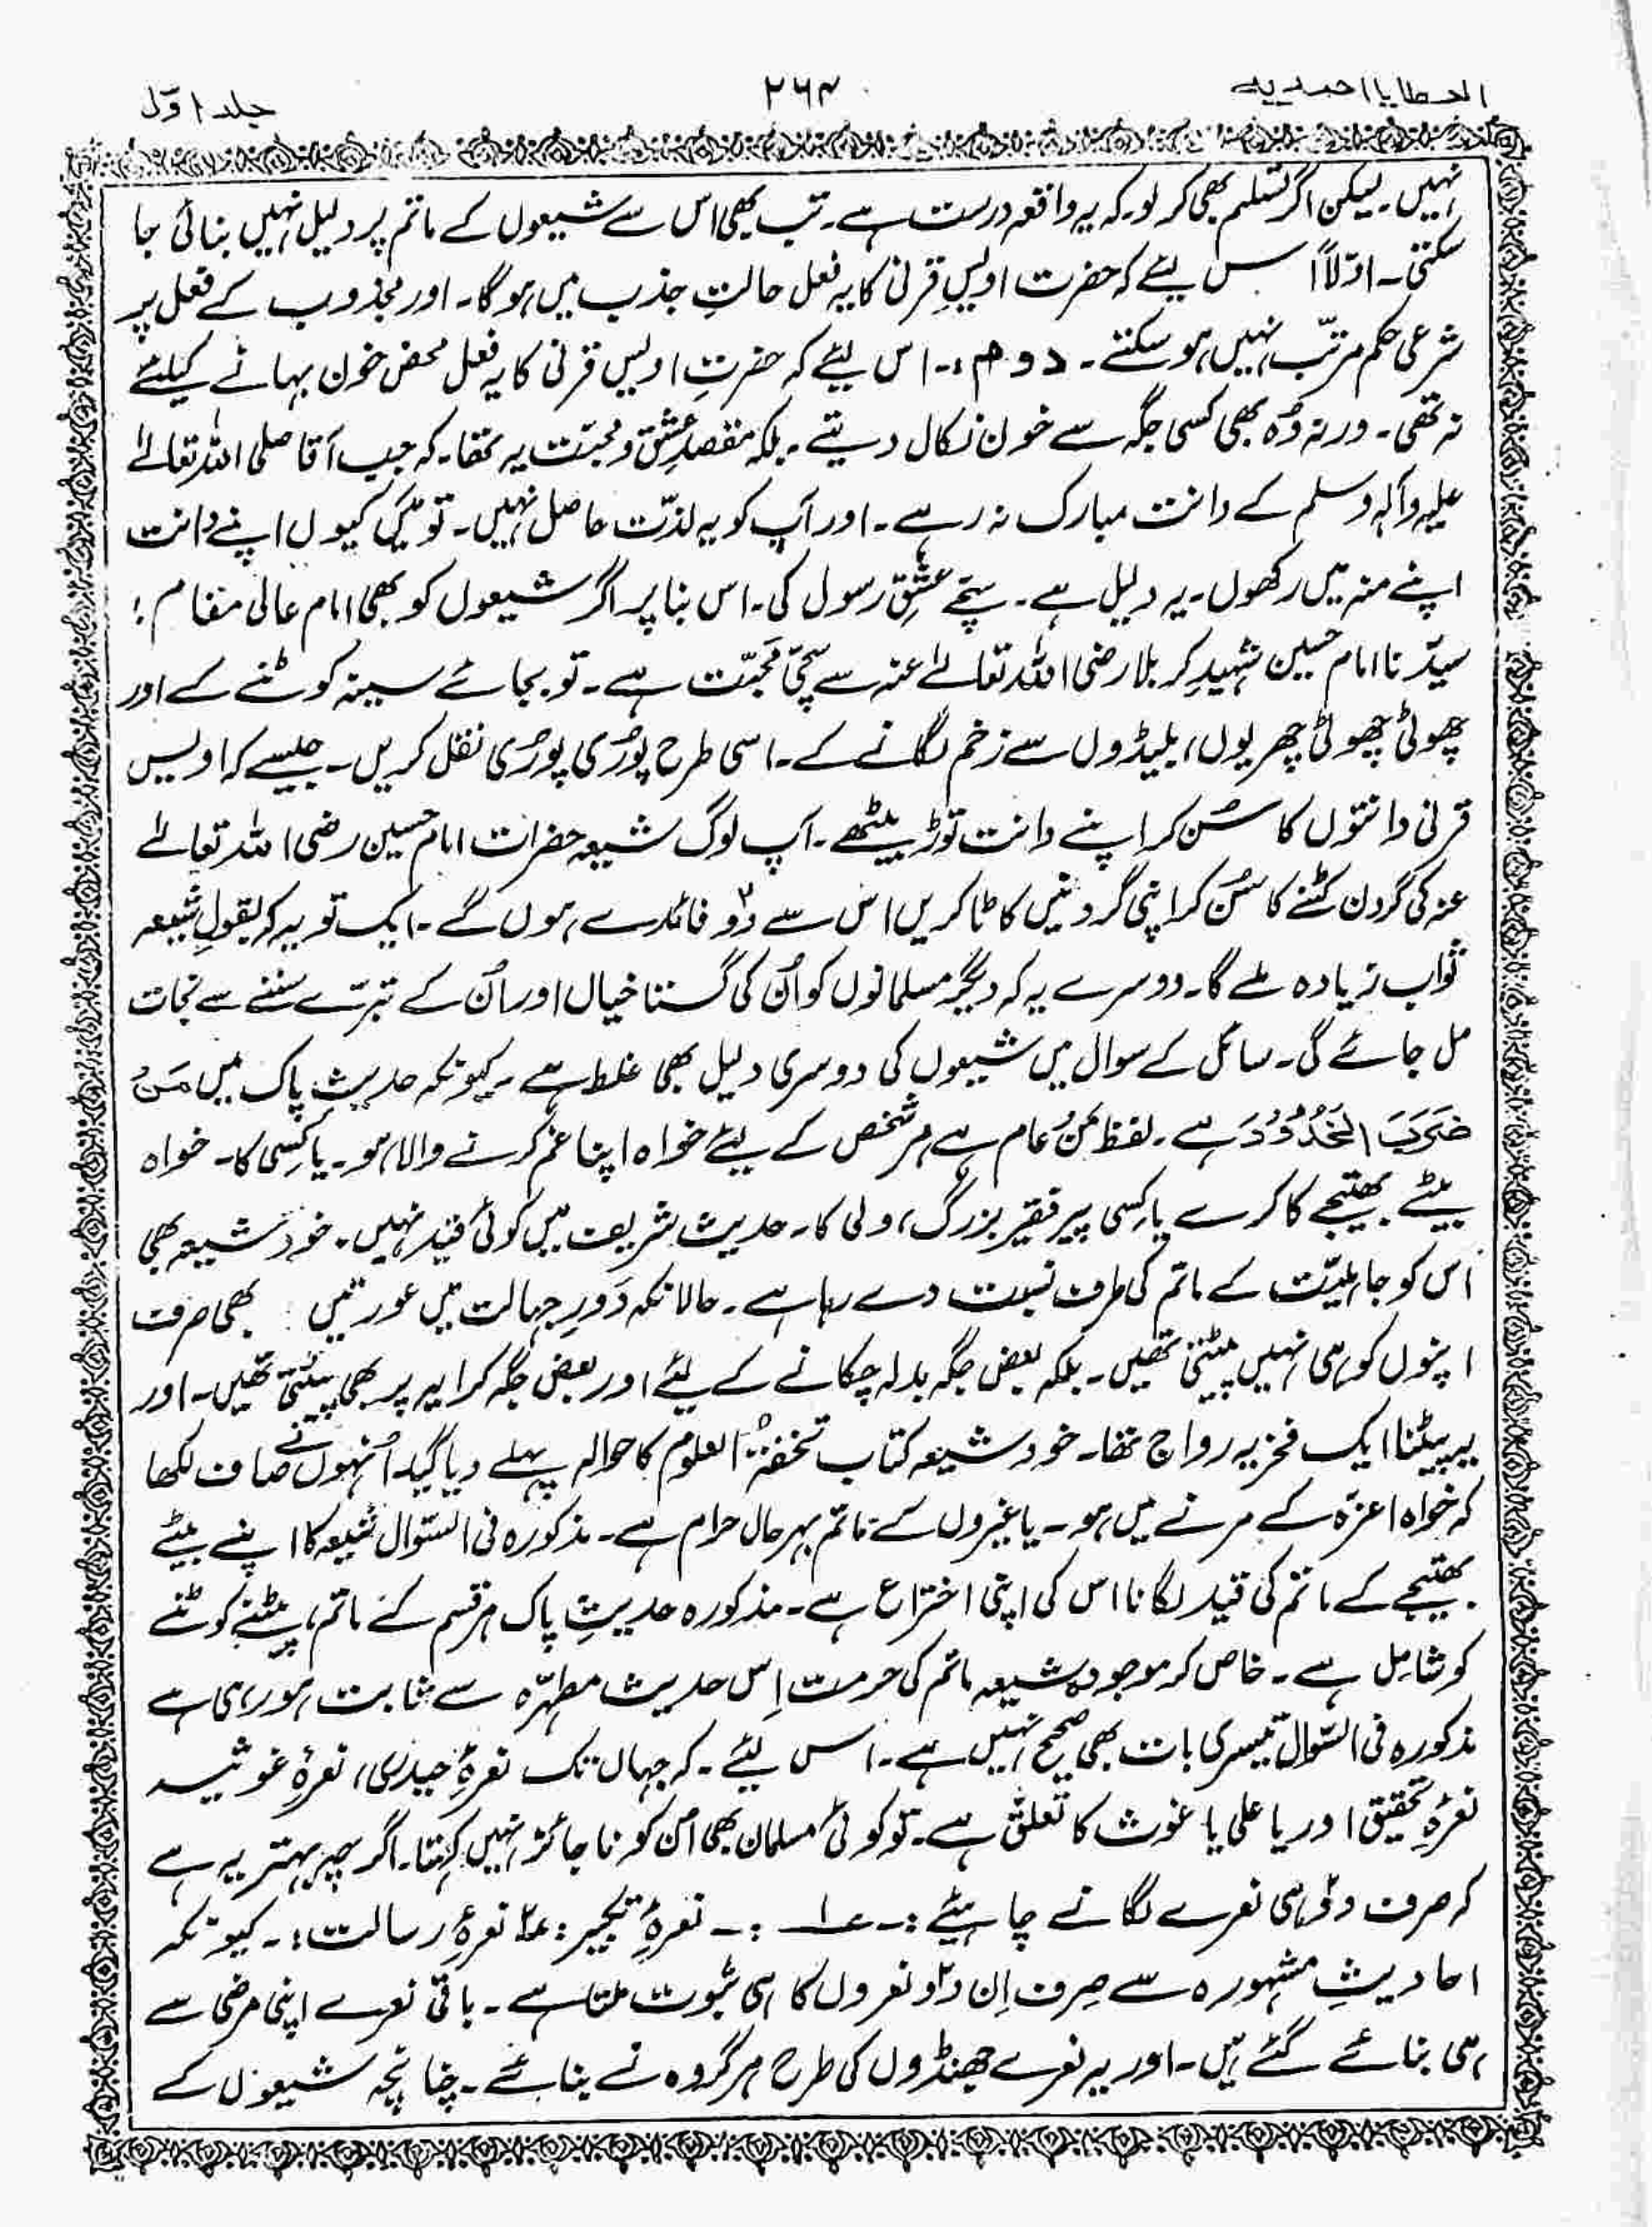 العطایا احمدیہ
۲۶۴
جلد اوّل
نہیں۔ لیکن اگر تسلیم بھی کر لو۔ کہ یہ واقعہ درست ہے۔ تب بھی اس سے شیعوں کے ماتم پر دلیل نہیں بنائی جا
سکتی۔ اوّلاً اس لیئے کہ حضرت اویسِ قرنی کا یہ فعل حالتِ جذب میں ہوگا۔ اور مجذوب کے فعل پر
شرعی حکم مرتّب نہیں ہو سکتے۔ دوم:۔ اس لیئے کہ حضرتِ اویس قرنی کا یہ فعل محض خون بہانے کیلئے
نہ تھی۔ ورنہ وُہ بھی کسی جگہ سے خون نکال دیتے۔ بلکہ مقصدِ عشق و محبّت یہ تھا۔ کہ جب آقا صلی اللہ تعالےٰ
علیہ وآلہٖ وسلم کے دانت مبارک نہ رہے۔ اور آپ کو یہ لذّت حاصل نہیں۔ تو میَں کیوں اپنے دانت
اپنے منہ میں رکھوں۔ یہ دلیل ہے۔ سچّے عشقِ رسول کی۔ اس بنا پر اگر شیعوں کو بھی امام عالی مقام؛
سیّدنا امام حسین شہیدِ کربلا رضی اللہ تعالےٰ عنہ سے سچّی مَحبّت ہے۔ تو بجائے سینہ کوٹنے کے اور
چھوٹی چھوٹی چھریوں، بلیڈوں سے زخم لگانے کے۔ اسی طرح پوُری پوُری نقل کریں۔ جیسے کہ اویس
قرنی دانتوں کا سُن کر اپنے دانت توڑ بیٹھے۔ آپ لوگ شیعہ حضرات امام حسین رضی اللہ تعالےٰ
عنہ کی گردن کٹنے کا سُن کر اپنی گردنیں کاٹا کریں اس سے دو۲ فائدے ہوں گے۔ ایک تو یہ کہ بقولِ شیعہ
ثواب زیادہ ملے گا۔ دوسرے یہ کہ دیگر مسلمانوں کو اُن کی گستاخیاں اور اُن کے تبرّے سننے سے نجات
مل جائے گی۔ سائل کے سوال میں شیعوں کی دوسری دلیل بھی غلط ہے۔ کیونکہ حدیثِ پاک میں مَنْ
ضَرَبَ الخُدُوْدَ ہے۔ لفظ مَنْ عام ہے ہر شخص کے لیئے خواہ اپنا غم کرنے والا ہو۔ یا کِسی کا۔ خواہ
بیٹے بھتیجے کا کرے یا کِسی پیر فقیر بزرگ، ولی کا۔ حدیث شریف میں کوئی قید نہیں۔ خود شیعہ بھی
اس کو جاہلیّت کے ماتم کی طرف نسبت دے رہا ہے۔ حالانکہ دَورِ جہالت میں عورتیں بھی صرف
اپنوں کو ہی نہیں پیٹتی تھیں۔ بلکہ بعض جگہ بدلہ چکانے کے لیئے اور بعض جگہ کرایہ پر بھی پیٹتی تھیں۔ اور
یہ پیٹنا ایک فخریہ رواج تھا۔ خود شیعہ کتاب تحفۃ العلوم کا حوالہ پہلے دیا گیا۔ اُنہوں نے صاف لکھا
کہ خواہ اعزّہ کے مرنے میں ہو۔ یا غیروں کے ماتم بہر حال حرام ہے۔ مذکورہ فی السّوال شیعہ کا اپنے بیٹے
بھتیجے کے ماتم کی قید لگانا اس کی اپنی اختراع ہے۔ مذکورہ حدیثِ پاک ہر قسم کے ماتم، پیٹنے کوٹنے
کو شامِل ہے۔ خاص کر موجودہ شیعہ ماتم کی حرمت اِس حدیث مطہّرہ سے ثابت ہو رہی ہے
مذکورہ فی السّوال تیسری بات بھی صحیح نہیں ہے۔ اس لیئے۔ کہ جہاں تک نعرۂِ حیدری، نعرۂِ غوثیہ
نعرۂِ تحقیق اور یا علی یا غوث کا تعلّق ہے۔ تو کوئی مسلمان بھی اس کو ناجائز نہیں کہتا۔ اگرچہ بہتر یہ ہے
کہ صرف دو ہی نعرے لگانے چاہیئے:۔ ۱؎ :۔ نعرۂِ تکبیر: ۲؎ نعرۂِ رسالت:۔ کیونکہ
احادیثِ مشہورہ سے صِرف اِن دو۲ نعروں کا ہی ثبوت ملتا ہے۔ باقی نعرے اپنی مرضی سے
ہی بنائے گئے ہیں۔ اور یہ نعرے جھنڈوں کی طرح ہر گروہ نے بنائے۔ چنانچہ شیعوں کے